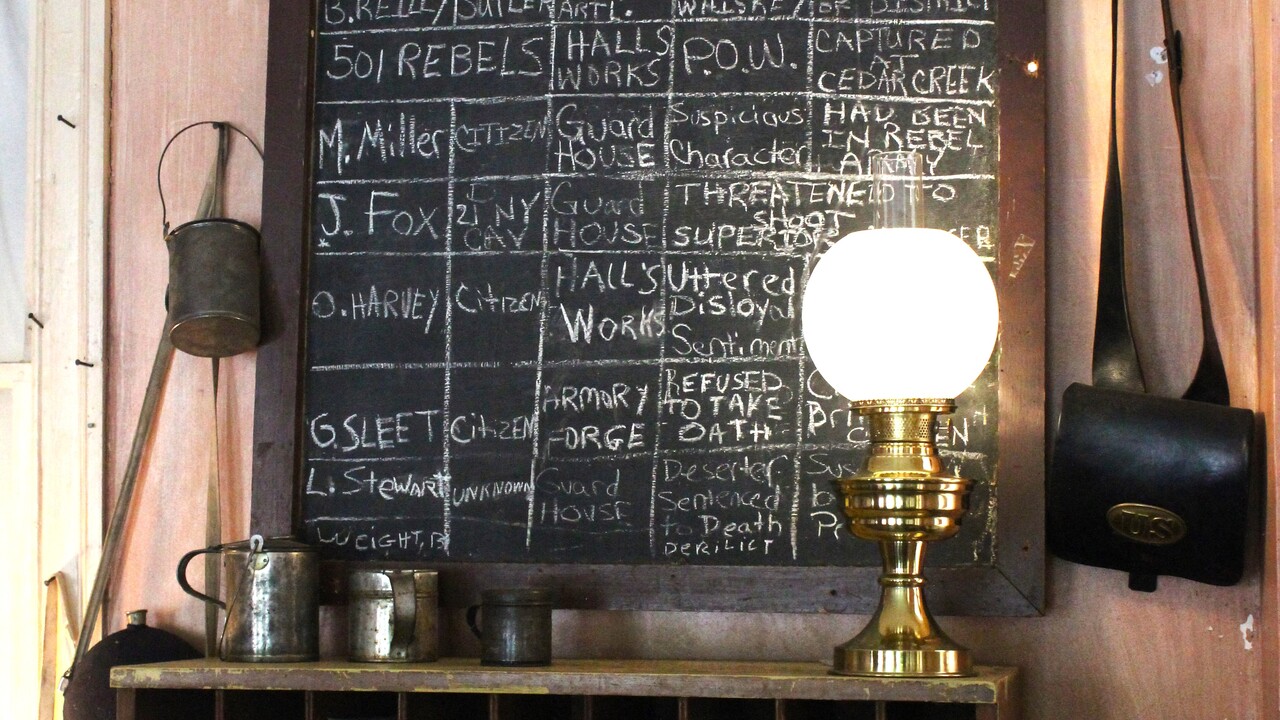 B. REILLY SUTLER ARTL. WHISKEY DISTRICT
501 REBELS HALLS WORKS P.O.W. CAPTURED AT CEDAR CREEK
M. Miller CITIZEN Guard HOUSE Suspicious Character HAD BEEN IN REBEL ARMY
J. Fox 21 NY CAV Guard HOUSE THREATENED TO SHOOT SUPERIOR
O. HARVEY CitizEN HALL'S WORKS Uttered Disloyal Sentiment
G. SLEET CitizEN ARMORY FORGE REFUSED TO TAKE OATH
L. Stewart UNKNOWN Guard HOUSE Deserter Sentenced to Death
WEIGHT, B DERILICT
US